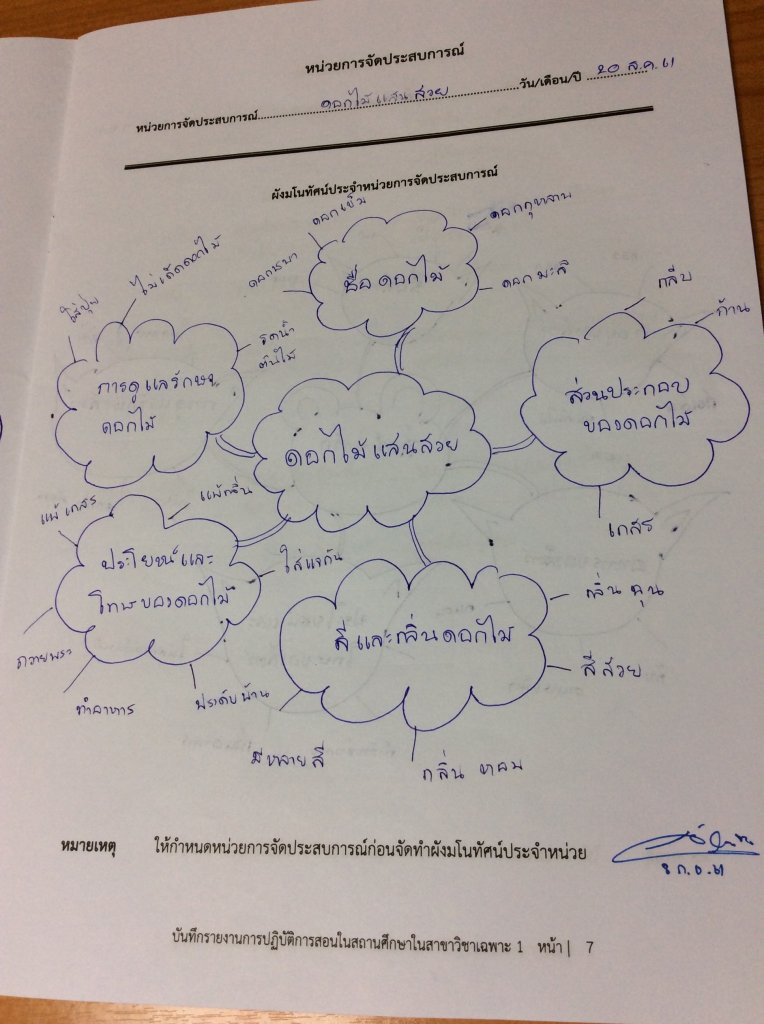 หน่วยการจัดประสบการณ์
หน่วยการจัดประสบการณ์ ดอกไม้แสนสวย วัน/เดือน/ปี 20 ส.ค. 61
ผังมโนทัศน์ประจำหน่วยการจัดประสบการณ์
ชื่อดอกไม้
ดอกชบา
ดอกเข็ม
ดอกกุหลาบ
ดอกมะลิ
การดูแลรักษา
ดอกไม้
ใส่ปุ๋ย
ไม่เด็ดดอกไม้
รดน้ำ
ต้นไม้
ส่วนประกอบ
ของดอกไม้
กลีบ
ก้าน
เกสร
ดอกไม้แสนสวย
ประโยชน์และ
โทษของดอกไม้
แพ้เกสร
แพ้กลิ่น
ใส่แจกัน
ถวายพระ
ทำอาหาร
ประดับบ้าน
สีและกลิ่นดอกไม้
กลิ่นฉุน
สีสวย
มีหลายสี
กลิ่นหอม
หมายเหตุ ให้กำหนดหน่วยการจัดประสบการณ์ก่อนจัดทำผังมโนทัศน์ประจำหน่วย
บันทึกรายงานการปฏิบัติการสอนในสถานศึกษาในสาขาวิชาเฉพาะ 1 หน้า | 7